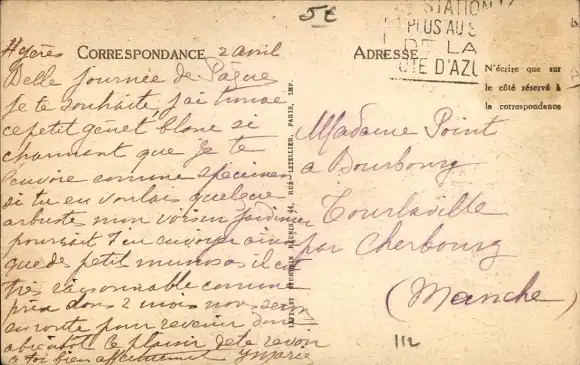 5€
STATION
PLUS AU S
DE LA
D'AZU
CORRESPONDANCE
ADRESSE
N'écrire que sur
le côté réservé à
la correspondance
Hyères 2 avril
Belle journée de Pâque
je te souhaite, j'ai trouvé
ce petit genet blanc si
charmant que je te
l'envoie comme spécimen
si tu en voulais quelque
arbuste mon voisin jardinier
pourrait t'en envoyer ainsi
que de petit mimosas il est
très raisonnable comme
prix dans 2 mois nous serons
en route pour revenir donc
a bientôt le plaisir de te revoir
a toi bien affectueusement Marie
Madame Point
a Bourbourg
Tourlaville
par Cherbourg
(Manche)
112
RUE LETELLIER, PARIS, IMP.